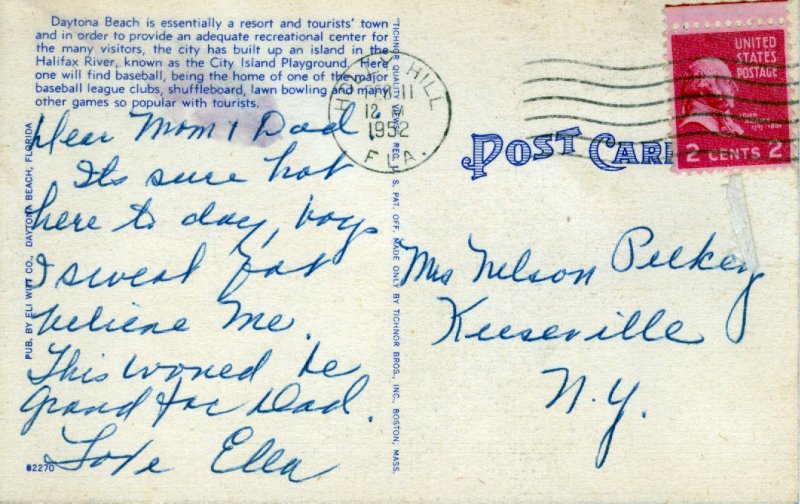 Daytona Beach is essentially a resort and tourists' town
and in order to provide an adequate recreational center for
the many visitors, the city has built up an island in the
Halifax River, known as the City Island Playground. Here
one will find baseball, being the home of one of the major
baseball league clubs, shuffleboard, lawn bowling and many
other games so popular with tourists.
Dear Mom & Dad
Its sure hot
here to day, boys
I sweat
believe me.
This woued be
Grand for Dad.
Love Ella
82270
PUB. BY ELI WITT CO., DAYTONA BEACH, FLORIDA
"TICHNOR QUALITY VIEWS," REG. U. S. PAT. OFF. MADE ONLY BY TICHNOR BROS., INC., BOSTON, MASS.
HOLLY HILL
FEB 11
12
1952
FLA.
POST CARD
UNITED
STATES
POSTAGE
JOHN
ADAMS
1797-1801
2 CENTS 2
Mrs Nelson Pelkey
Keeseville
N.Y.